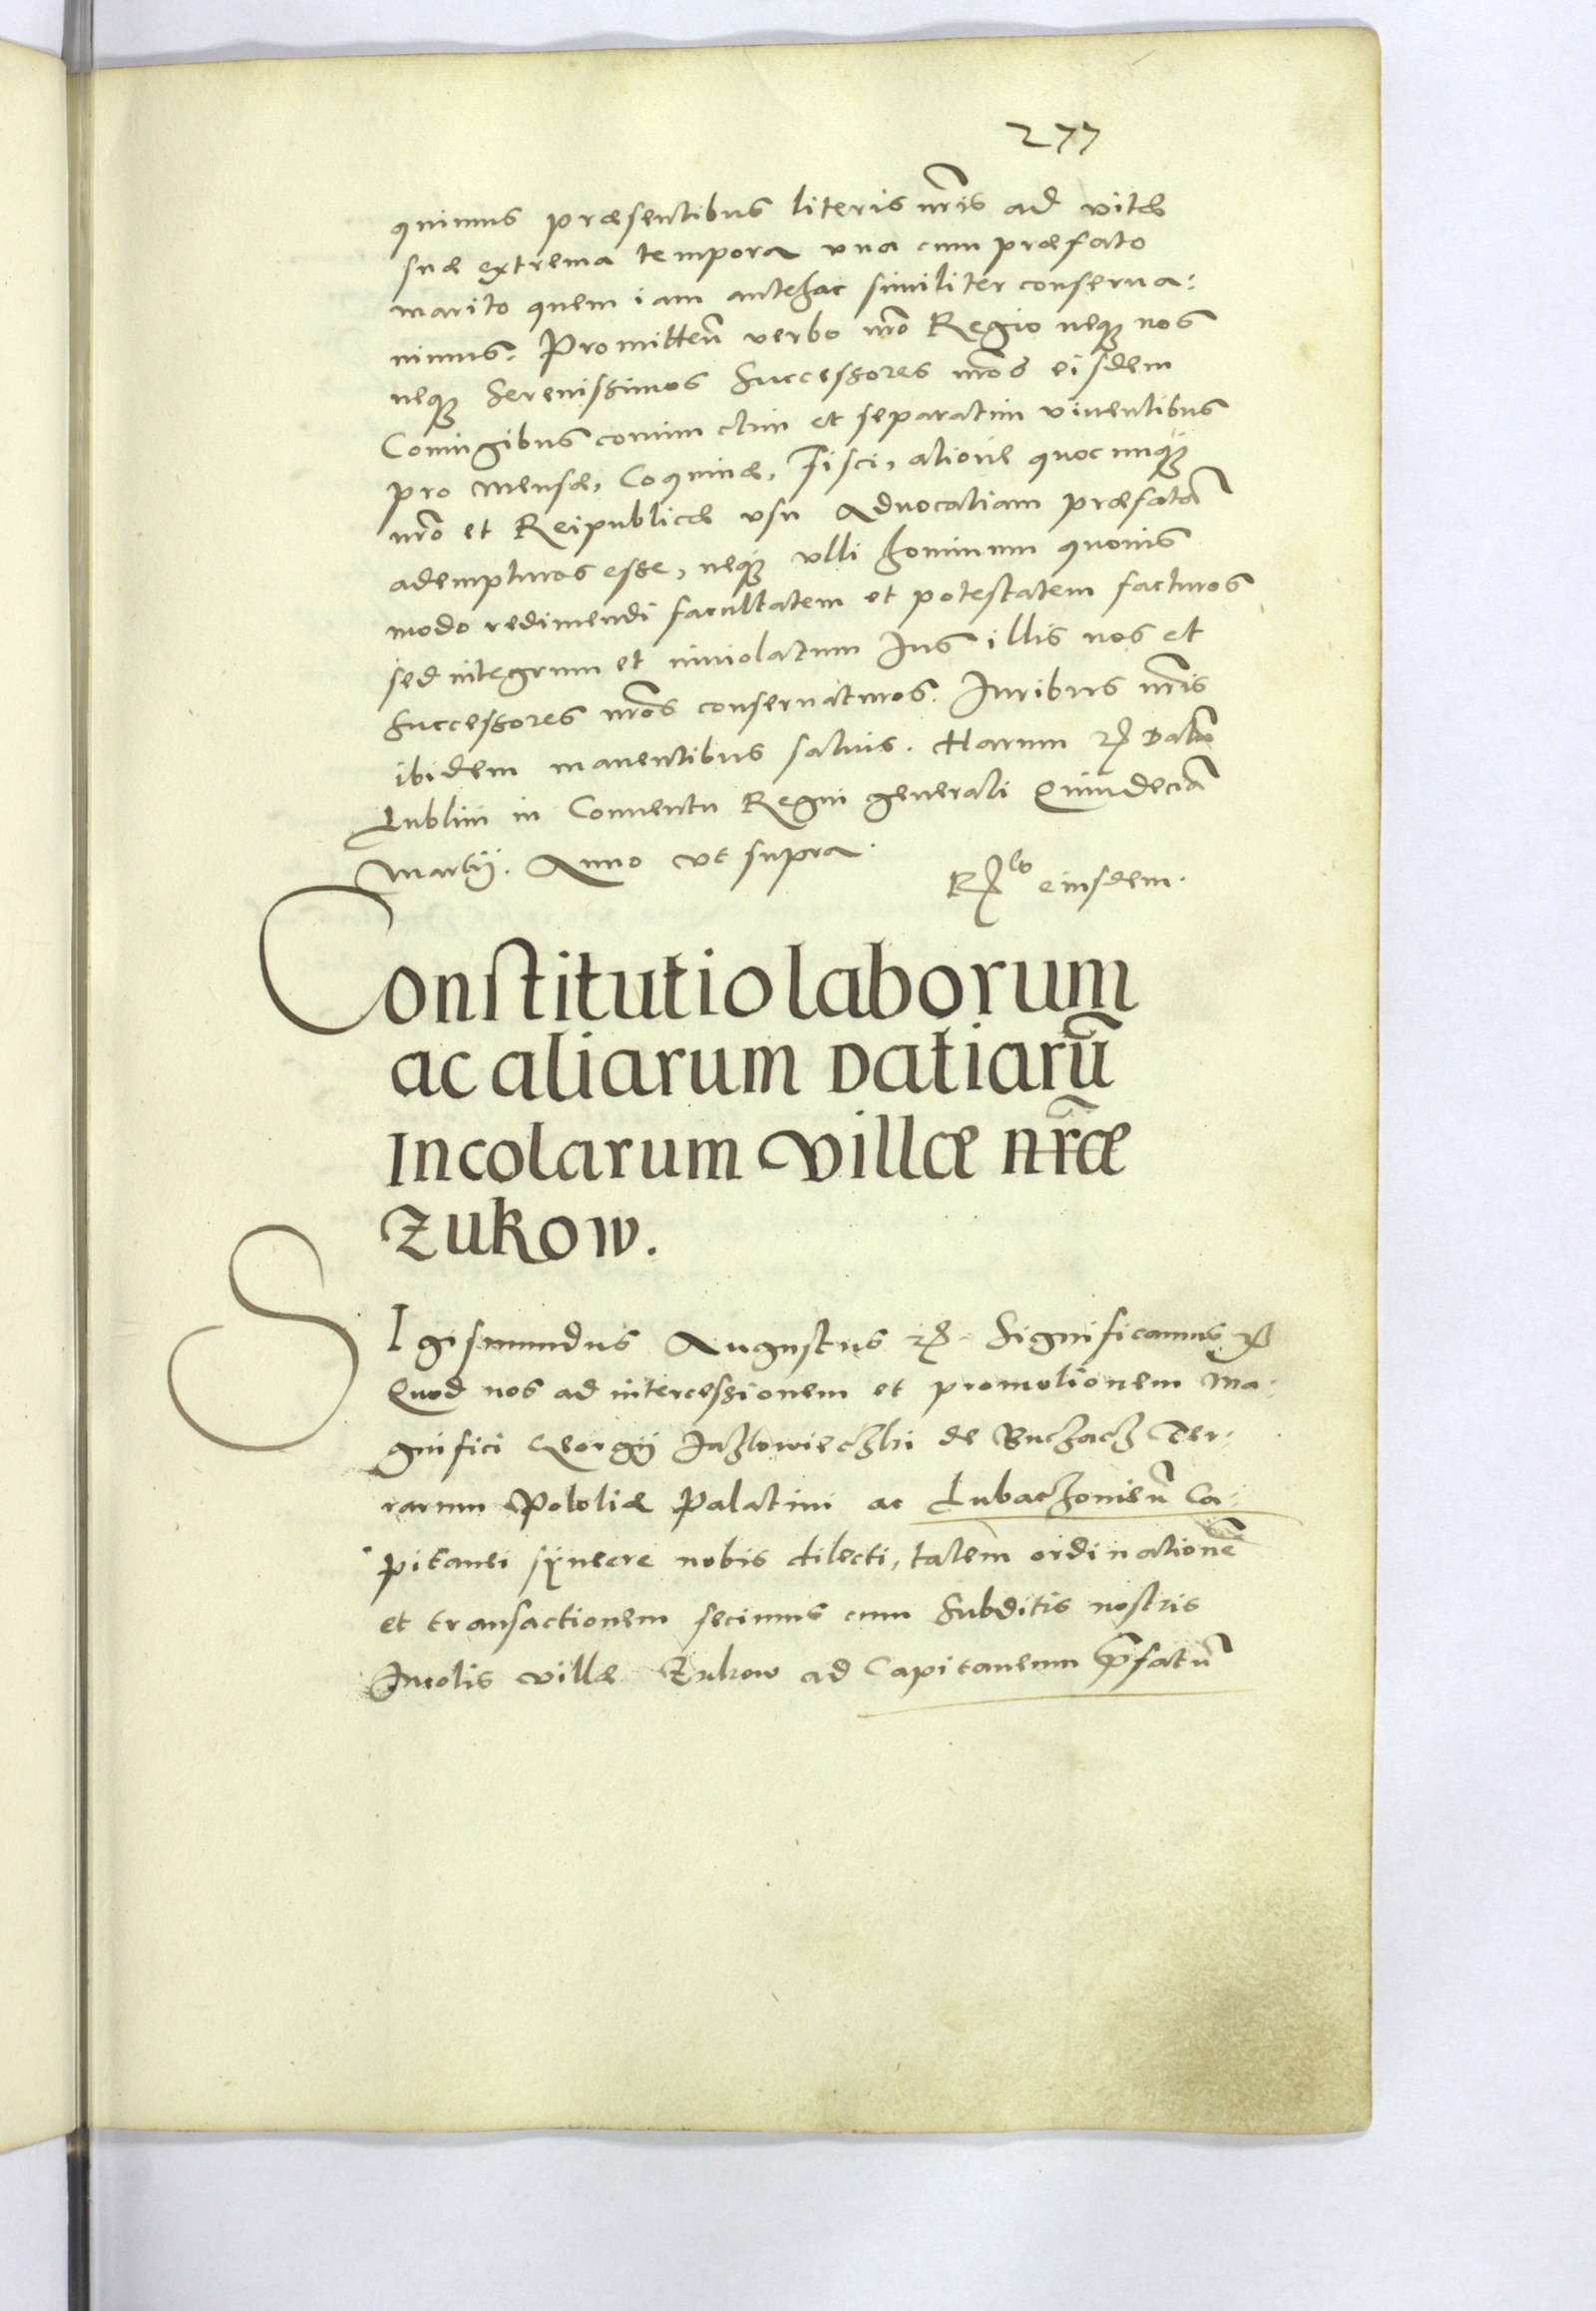 277
quimus præsentibus literis nr̃is ad vitæ
suæ extrema tempora vna cum præfato
marito quem iam antehac similiter conserua:
uimus. Promitteñ verbo nr̃o Regio neqꝫ nos
neqꝫ Serenissimos Successores nr̃os eisdem
Coniugibus coniunctim et separatim viuentibus
pro mensæ, Coquinæ, Fisci, alioue quocunqꝫ
nr̃o et Reipublicæ vsu Aduocatiam præfatã
adempturos esse, neqꝫ vlli hominum quouis
modo redimendi facultatem et potestatem facturos
sed integrum et inuiolatum Ius illis nos et
Successores nr̃os conseruaturos. Iuribus nr̃is
ibidem manentibus saluis. Harum ꝛc̃ Datũ
Lublini in Conuentu Regni generali Quindeciã
Martij. Anno vt supra.
Rẽlo eiusdem.
Constitutio laborum
ac aliarum Datiarũ
Incolarum villæ nr̃æ
Zukow.
SIgismundus Augustus ꝛc̃. Significamus ꝛc̃
Quod nos ad intercessionem et promotionem Ma:
gnifici Georgij Jazlowieczki de Buczacz Ter:
rarum Podoliæ Palatini ac Lubaczouieñ Ca:
pitanei syncere nobis dilecti, talem ordinationẽ
et transactionem fecimus cum Subditis nostris
Incolis villæ Zukow ad Capitaneum p̃fatũ